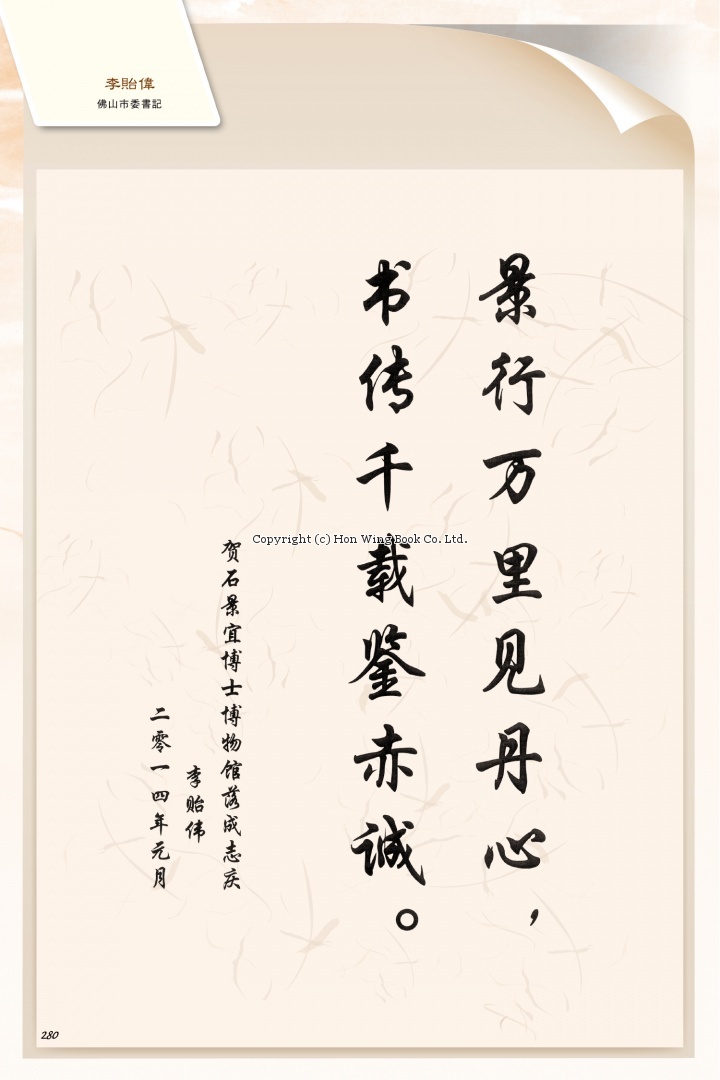 李貽偉
佛山市委書記
景行万里见丹心，
书传千载鉴赤诚。
贺石景宜博士博物馆落成志庆
李贻伟
二零一四年元月
Copyright (c) Hon Wing Book Co. Ltd.
280